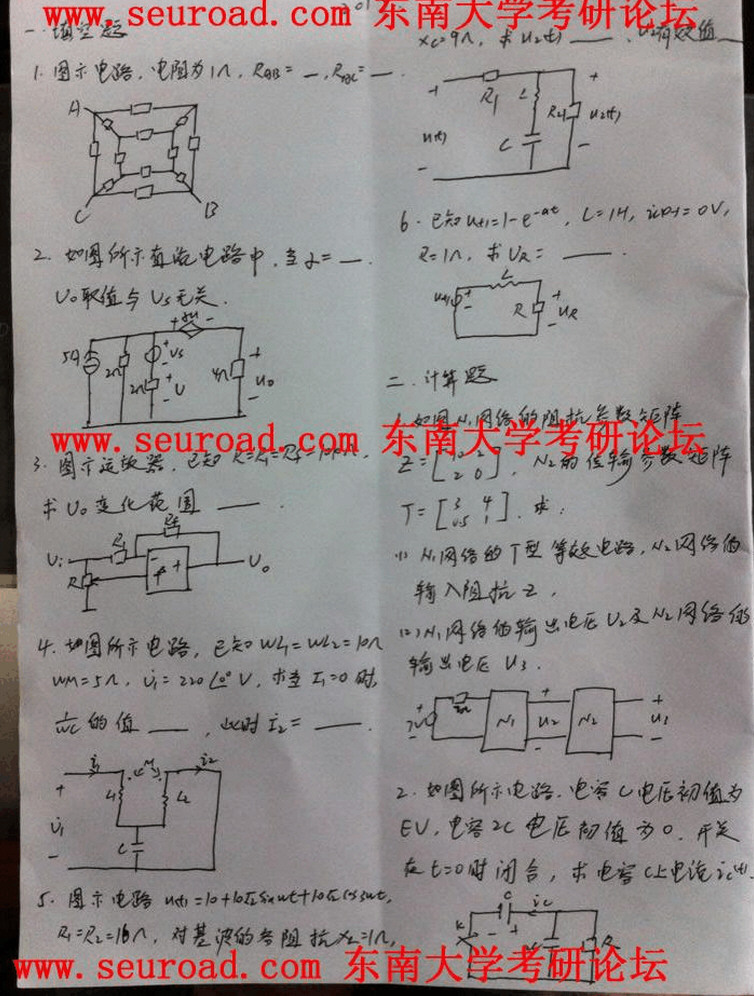 www.seuroad.com 东南大学考研论坛
一.填空题
1. 图示电路,电阻为1Ω,RAB= —,RBC= —.
A
C
B
2. 如图所示直流电路中,当α= —.
U0取值与Us无关.
αU
+ -
5A
2Ω
2Ω
+
Us
-
+
U
-
4Ω
+
U0
-
www.seuroad.com 东南大学考研论坛
3. 图示运放器,已知
求U0变化范围 ——.
Ui
R1
Rf
R
-
+
U0
4. 如图所示电路,已知WL1=WL2=10Ω
WM=5Ω, U̇1=220∠0° V, 求当İ1=0时,
1/WC 的值 ——, 此时İ2= ——.
i1
M
i2
+
U̇1
-
L1
L2
C
5. 图示电路 u(t)=10+10√2sinwt+10√2cos3wt,
R1=R2=16Ω, 对基波的各阻抗XL=1Ω,
XC=9Ω, 求U2(t) ——. U2有效值—
+
R1
L
+
R2
U2(t)
u(t)
C
-
-
6. 已知u(t)=1-e^-at, L=1H, i(0-)=0V,
R=1Ω, 求UR= ——.
L
u(t)
+
-
R
+
UR
-
二.计算题
1. 如图N1网络的阻抗参数矩阵
2 0 ], N2的传输参数矩阵
T=[ 3 4
0.5 1 ]. 求:
(1) N1网络的T型等效电路,N2网络的
输入阻抗Z,
(2) N1网络的输出电压U2及N2网络的
输出电压U3.
+
-
N1
+
U2
-
N2
+
U3
-
2. 如图所示电路,电容C电压初值为
EV, 电容2C电压初值为0. 开关
在t=0时闭合, 求电容C上电流ic(t).
K
C
- +
ic
R
www.seuroad.com 东南大学考研论坛